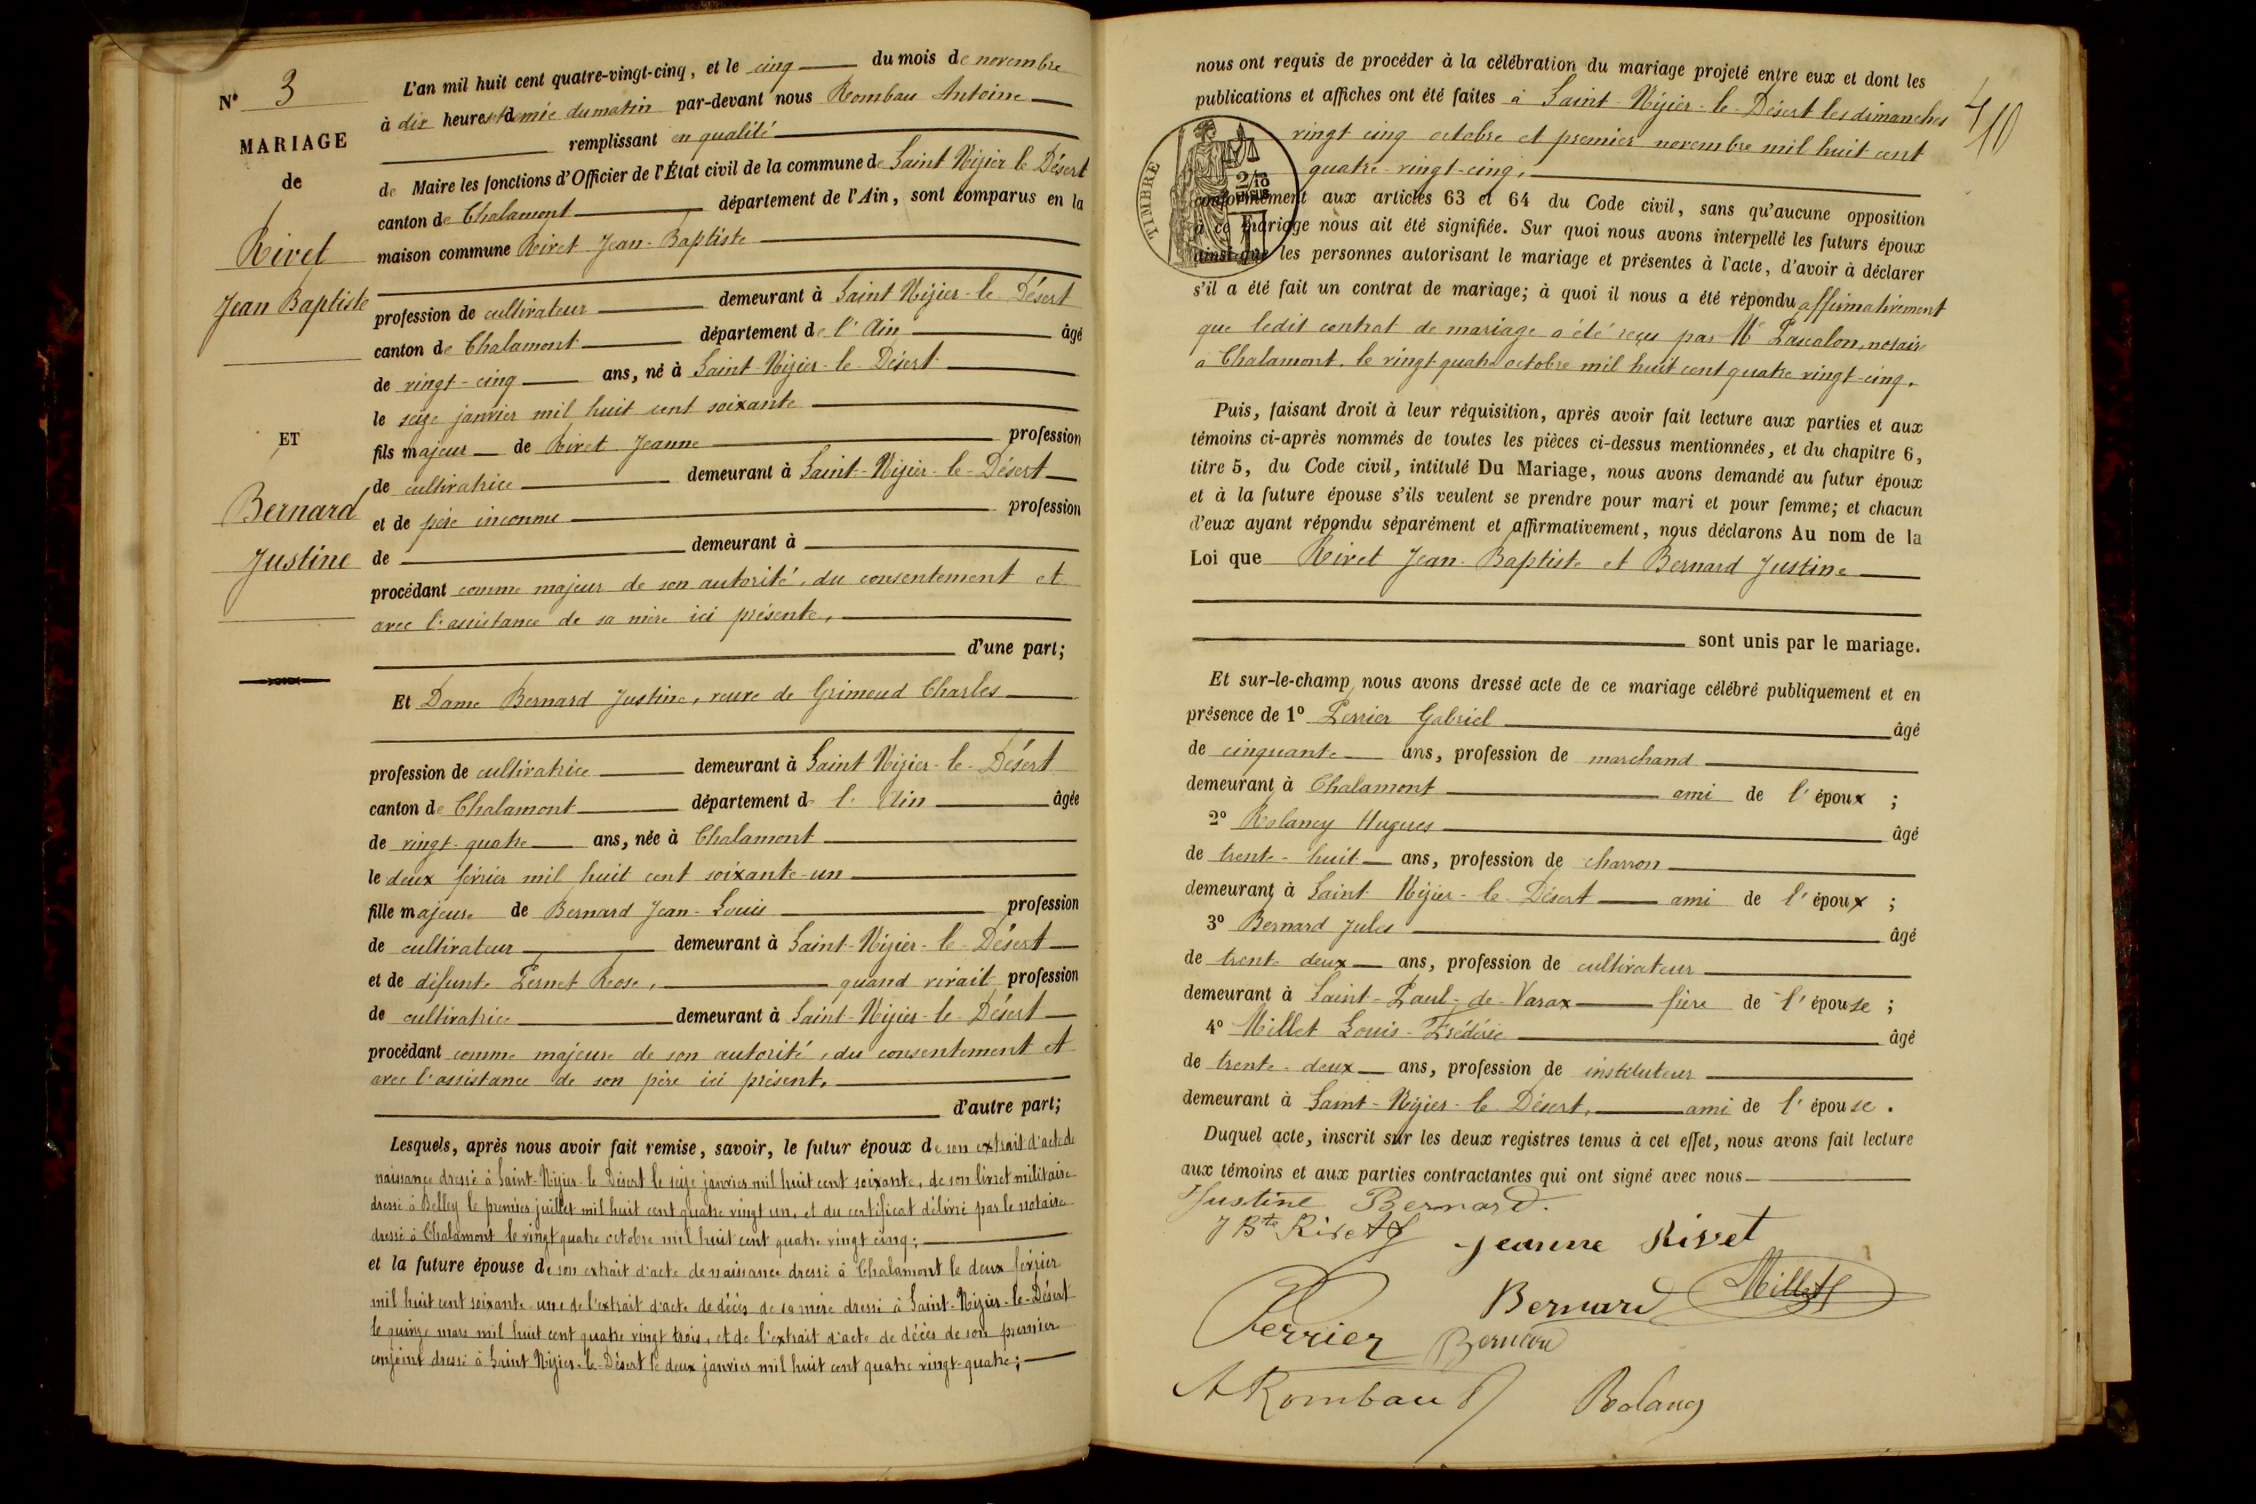 N° 3
MARIAGE
de
Rivet
Jean Baptiste
ET
Bernard
Justine
L'an mil huit cent quatre-vingt-cinq, et le cinq du mois de novembre
à dix heures et demie du matin par-devant nous Rombau Antoine
remplissant en qualité
de Maire les fonctions d'Officier de l'État civil de la commune de Saint Nizier le Désert
canton de Chalamont département de l'Ain, sont comparus en la
maison commune Rivet Jean-Baptiste
profession de cultivateur demeurant à Saint Nizier-le-Désert
canton de Chalamont département de l'Ain âgé
de vingt-cinq ans, né à Saint-Nizier-le-Désert
le seize janvier mil huit cent soixante
fils majeur de Rivet Jeanne profession
de cultivatrice demeurant à Saint-Nizier-le-Désert
et de père inconnu profession
de demeurant à
procédant comme majeur de son autorité, du consentement et
avec l'assistance de sa mère ici présente,
d'une part;
Et Dame Bernard Justine, veuve de Grimaud Charles
profession de cultivatrice demeurant à Saint Nizier-le-Désert
canton de Chalamont département de l'Ain âgée
de vingt-quatre ans, née à Chalamont
le deux février mil huit cent soixante-un
fille majeure de Bernard Jean-Louis profession
de cultivateur demeurant à Saint-Nizier-le-Désert
et de défunte Pernet Rose, quand vivait profession
de cultivatrice demeurant à Saint-Nizier-le-Désert
procédant comme majeure de son autorité, du consentement et
avec l'assistance de son père ici présent,
d'autre part;
Lesquels, après nous avoir fait remise, savoir, le futur époux de son extrait d'acte de
naissance dressé à Saint-Nizier-le-Désert le seize janvier mil huit cent soixante, de son livret militaire
dressé à Belley le premier juillet mil huit cent quatre vingt un, et du certificat délivré par le notaire
dressé à Chalamont le vingt quatre octobre mil huit cent quatre vingt cinq;
et la future épouse de son extrait d'acte de naissance dressé à Chalamont le deux février
mil huit cent soixante-un, de l'extrait d'acte de décès de sa mère dressé à Saint-Nizier-le-Désert
le quinze mars mil huit cent quatre vingt trois, et de l'extrait d'acte de décès de son premier
conjoint dressé à Saint Nizier-le-Désert le deux janvier mil huit cent quatre vingt-quatre;
nous ont requis de procéder à la célébration du mariage projeté entre eux et dont les
publications et affiches ont été faites à Saint-Nizier-le-Désert les dimanches
vingt cinq octobre et premier novembre mil huit cent
quatre-vingt-cinq,
TIMBRE
2/10
EN SUS
conformément aux articles 63 et 64 du Code civil, sans qu'aucune opposition
à ce mariage nous ait été signifiée. Sur quoi nous avons interpellé les futurs époux
ainsi que les personnes autorisant le mariage et présentes à l'acte, d'avoir à déclarer
s'il a été fait un contrat de mariage; à quoi il nous a été répondu affirmativement
que ledit contrat de mariage a été reçu par Me Pascalon, notaire
à Chalamont, le vingt quatre octobre mil huit cent quatre vingt-cinq.
Puis, faisant droit à leur réquisition, après avoir fait lecture aux parties et aux
témoins ci-après nommés de toutes les pièces ci-dessus mentionnées, et du chapitre 6,
titre 5, du Code civil, intitulé Du Mariage, nous avons demandé au futur époux
et à la future épouse s'ils veulent se prendre pour mari et pour femme; et chacun
d'eux ayant répondu séparément et affirmativement, nous déclarons Au nom de la
Loi que Rivet Jean-Baptiste et Bernard Justine
sont unis par le mariage.
Et sur-le-champ nous avons dressé acte de ce mariage célébré publiquement et en
présence de 1° Perrier Gabriel âgé
de cinquante ans, profession de marchand
demeurant à Chalamont ami de l'époux ;
2° Rolancy Hugues âgé
de trente-huit ans, profession de charron
demeurant à Saint Nizier-le-Désert ami de l'époux ;
3° Bernard Jules âgé
de trente deux ans, profession de cultivateur
demeurant à Saint-Paul-de-Varax frère de l'épouse ;
4° Millet Louis-Frédéric âgé
de trente-deux ans, profession de instituteur
demeurant à Saint-Nizier-le-Désert, ami de l'épouse.
Duquel acte, inscrit sur les deux registres tenus à cet effet, nous avons fait lecture
aux témoins et aux parties contractantes qui ont signé avec nous
Justine Bernard.
J Bte Rivet
Jeanne Rivet
Perrier
Bernard
Millet
Bernard
A Rombau
Rolancy